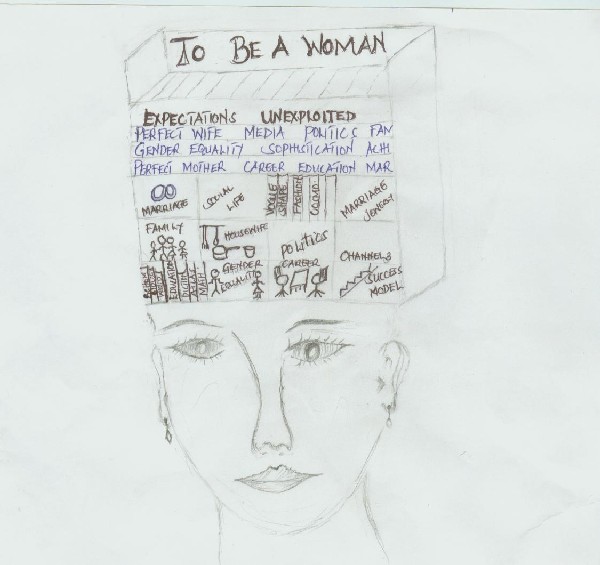 TO BE A WOMAN
EXPECTATIONS UNEXPLOITED
PERFECT WIFE MEDIA POLITICS FAN
GENDER EQUALITY SOPHISTICATION ACHI
PERFECT MOTHER CAREER EDUCATION MAR
MARRIAGE
SOCIAL LIFE
VOGUE
SHAPE
FASHION
MARRIAGE
FAMILY
HOUSEWIFE
POLITICS
EDUCATION
GENDER
EQUALITY
CAREER
CHANNEL 3
SUCCESS
MODEL